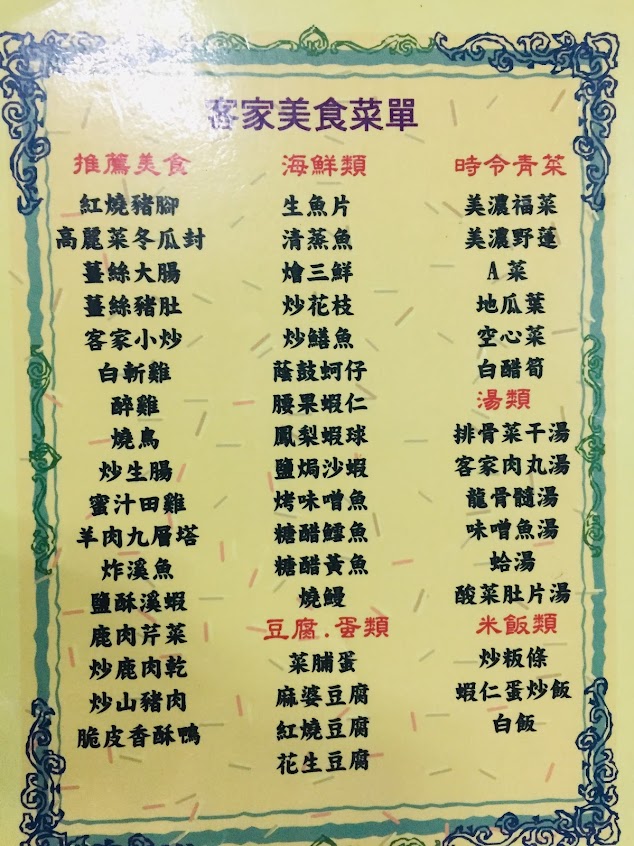 客家美食菜單
推薦美食
紅燒豬腳
高麗菜冬瓜封
薑絲大腸
薑絲豬肚
客家小炒
白斬雞
醉雞
燒鳥
炒生腸
蜜汁田雞
羊肉九層塔
炸溪魚
鹽酥溪蝦
鹿肉芹菜
炒鹿肉乾
炒山豬肉
脆皮香酥鴨
海鮮類
生魚片
清蒸魚
燴三鮮
炒花枝
炒鱔魚
蔭鼓蚵仔
腰果蝦仁
鳳梨蝦球
鹽焗沙蝦
烤味噌魚
糖醋鱈魚
糖醋黃魚
燒鰻
豆腐.蛋類
菜脯蛋
麻婆豆腐
紅燒豆腐
花生豆腐
時令青菜
美濃福菜
美濃野蓮
A菜
地瓜葉
空心菜
白醋筍
湯類
排骨菜干湯
客家肉丸湯
龍骨髓湯
味噌魚湯
蛤湯
酸菜肚片湯
米飯類
炒粄條
蝦仁蛋炒飯
白飯